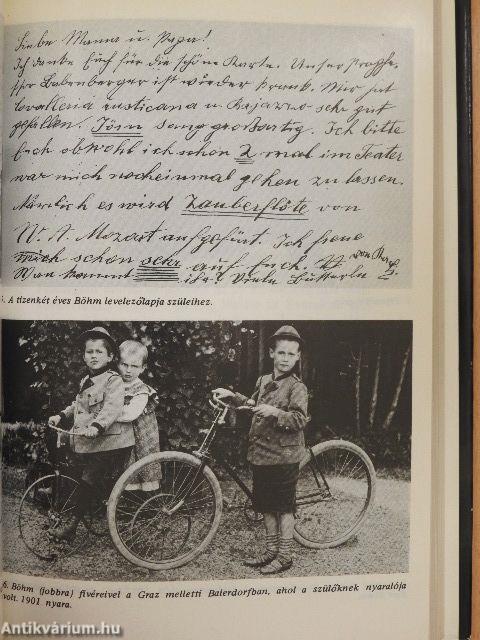 Liebe Mama u. Papa!
Ich danke Euch für die schöne Karte. Unser Proffe-
ssor Babenberger ist wieder krank. Mir hat
Cavalleria rusticana u. Bajazzo sehr gut
gefallen. Jörn sang großartig. Ich bitte
Euch obwohl ich schon 2 mal im Teater
war mich nocheinmal gehen zu lassen.
Nämlich es wird Zauberflöte von
W. A. Mozart aufgefürt. Ich freue
mich schon sehr auf Euch.
Wann kommt ihr? Viele Busserln von Karl
5. A tizenkét éves Böhm levelezőlapja szüleihez.
6. Böhm (jobbra) fivéreivel a Graz melletti Baierdorfban, ahol a szülőknek nyaralója
volt. 1901 nyara.
Antikvárium.hu